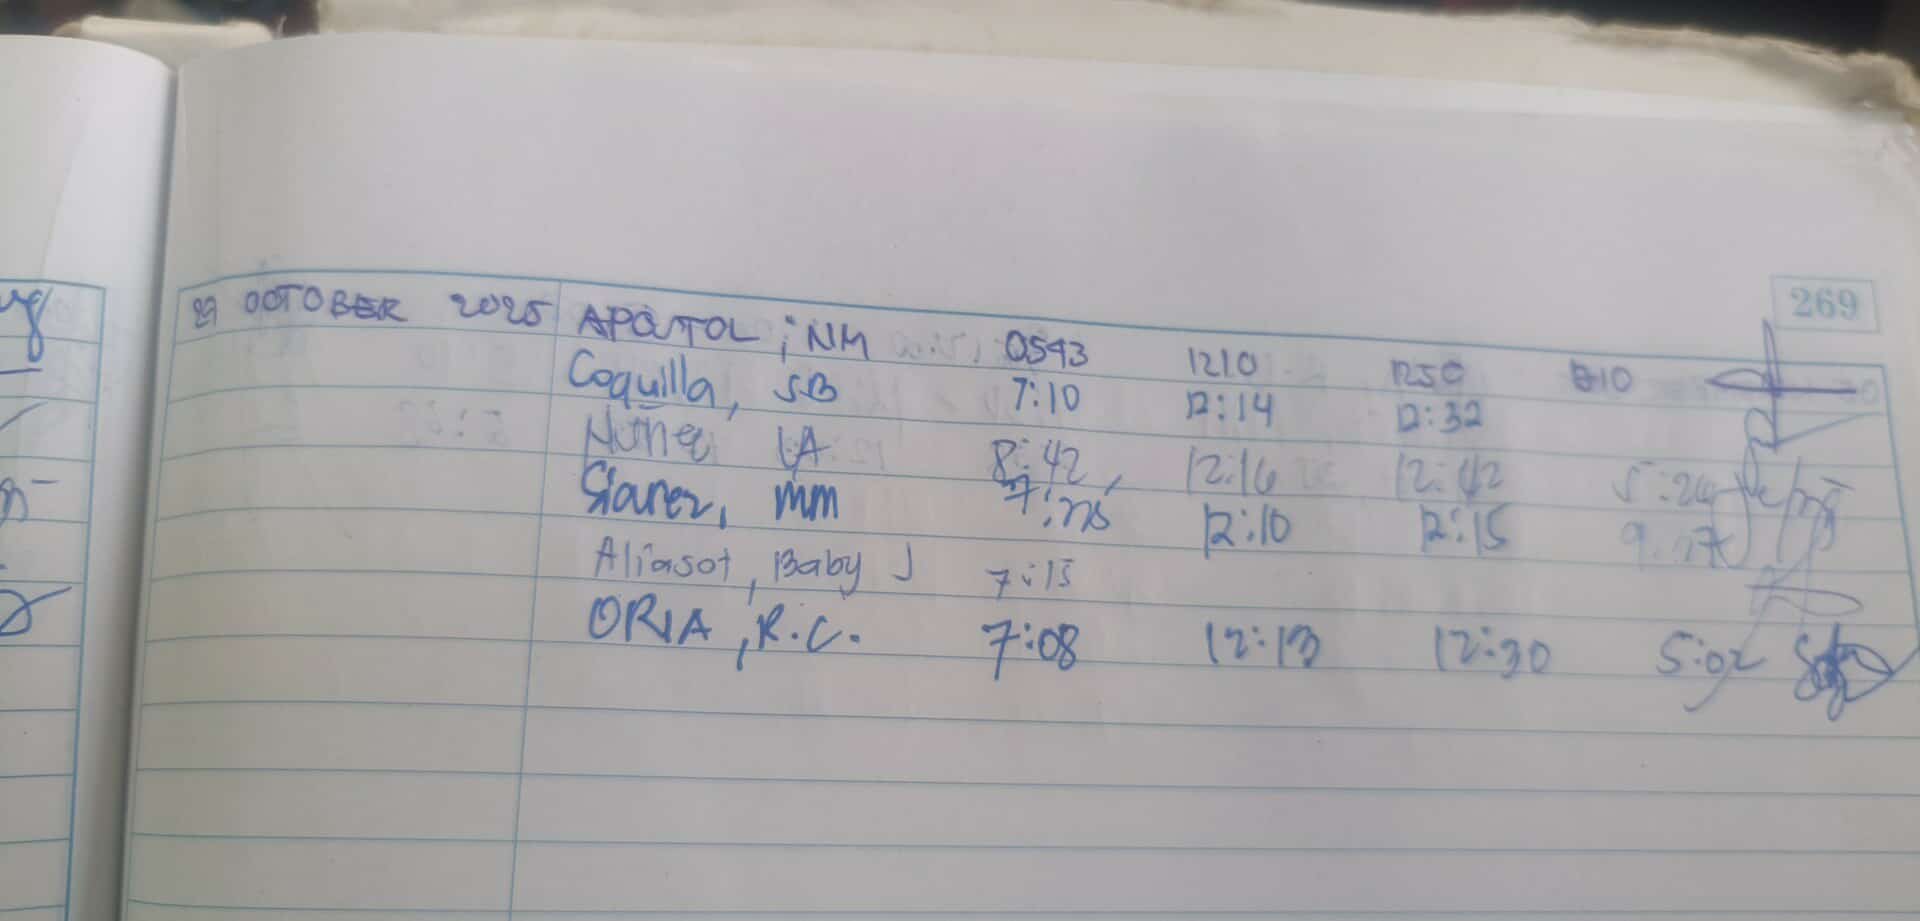 269
OCTOBER 2025 APOSTOL, NM 0543 1210 1250 1310
Coquilla, SB 7:10 12:14 12:32
Nuñez LA 8:42, 12:16 12:42 5:24
mm 12:10 12:15
Aliasot, Baby J 7:15
ORIA, R.C. 7:08 12:13 12:30 5:02